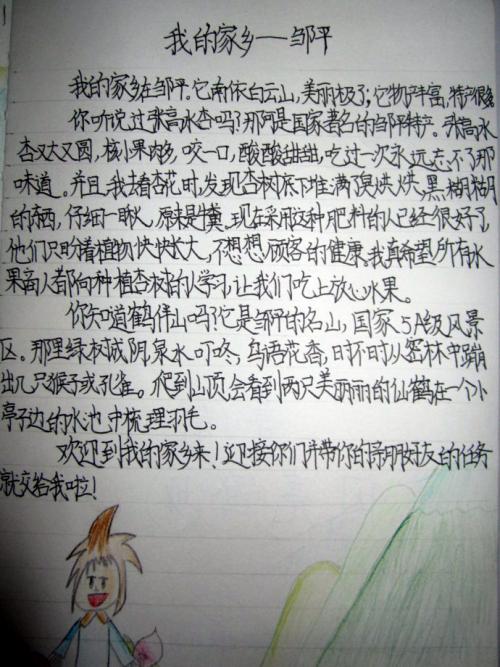 我的家乡——邹平
我的家乡在邹平。它南依白云山,美丽极了;它物产丰富,特产很多
你听说过张高水杏吗?那可是国家著名的邹平特产。张高水
杏又大又圆,核小果肉多,咬一口,酸酸甜甜,吃过一次永远忘不了那
味道。并且,我去看杏花时,发现杏树底下堆满了臭烘烘、黑糊糊
的东西,仔细一瞅,原来是粪。现在采用这种肥料的人已经很好了,
他们只盼着植物快快长大,不想想顾客的健康。我真希望所有水
果商人都向种植杏树的人学习,让我们吃上放心水果。
你知道鹤伴山吗?它是邹平的名山,国家5A级风景
区。那里绿树成阴,泉水叮咚,鸟语花香,时不时从密林中蹦
出几只猴子或孔雀。爬到山顶会看到两只美丽丽的仙鹤在一个小
亭子边的水池中梳理羽毛。
欢迎到我的家乡来!迎接你们并带你的朋友的任务
就交给我啦!